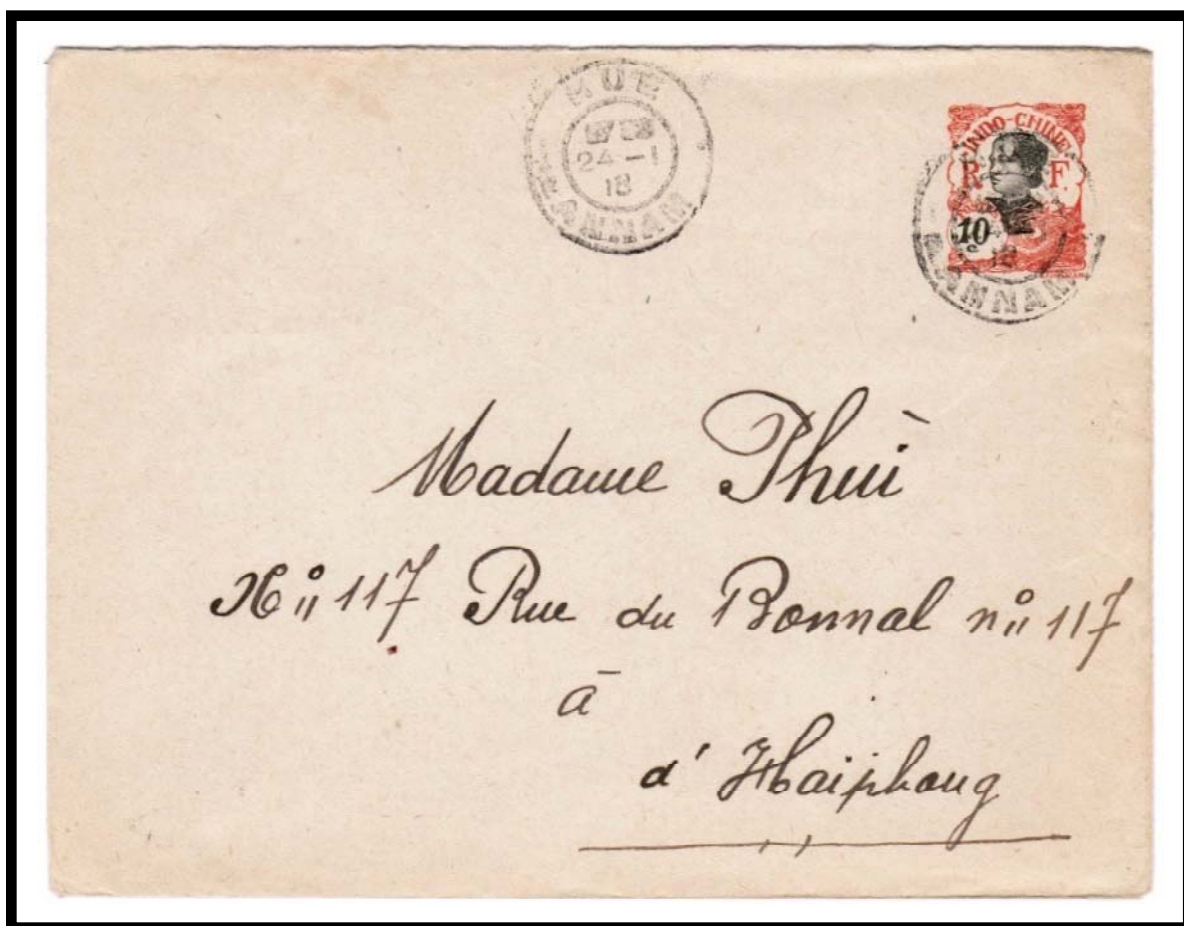 HUE
24 - 1
18
ANNAM
INDO-CHINE
R F
10
18
ANNAM
Madame Phui
No 117 Rue du Bonnal no 117
à
d' Haiphong